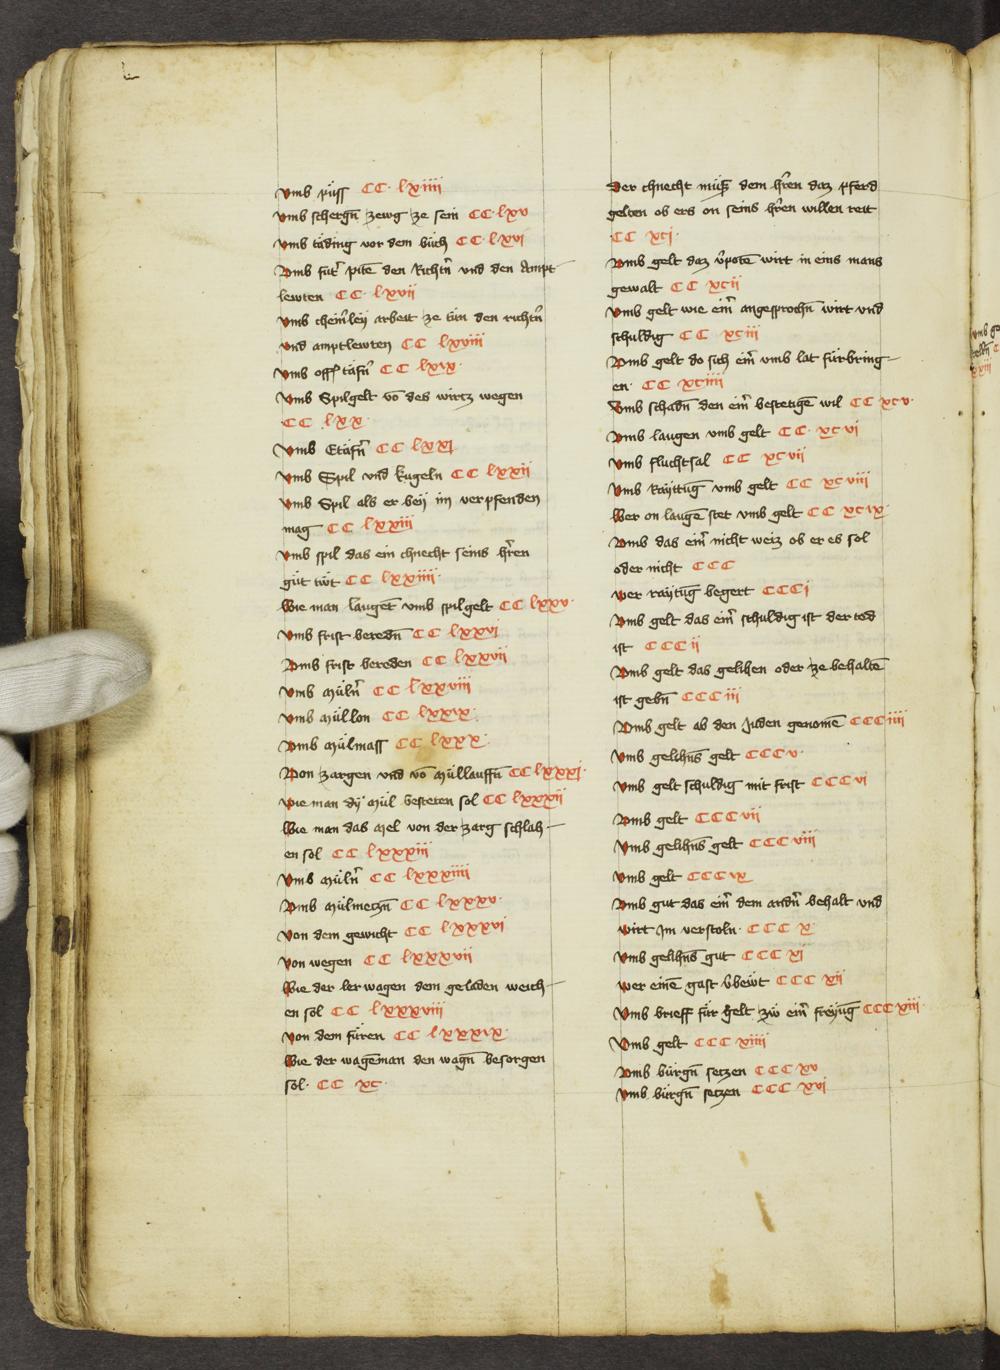 vmb püss CC lxiiii
vmb schergn̄ zewg ze sein CC lxv
vmb täding vor dem büch CC lxvi
Vmb fut̃ pitē den Richtn̄ vnd den Ampt
lewten CC lxvii
vmb cheinr̄leÿ arbeit ze tün den richtn̄
vnd amptlewten CC lxviii
vmb off täfn̄ CC lxix
vmb Spilgelt vō des wirtz wegen
CC lxx
vmb Etäfn̄ CC lxxj
vmb Spil vnd kugeln CC lxxii
vmb Spil als er beÿ im verpfenden
mag CC lxxiii
vmb spil das ein chnecht seins hr̄en
güt twt CC lxxiiii
Wie man laugēt vmb spilgelt CC lxxv
vmb frist beredn̄ CC lxxvi
Vmb frist bereden CC lxxvii
vmb müln̄ CC lxxviii
vmb müllon CC lxxix
vmb mülmass CC lxxx
Von zargen vnd vō müllauffn̄ CC lxxxj
wie man dÿ mül besteten sol CC lxxxii
Wie man das mel von der zarg schlah
en sol CC lxxxiii
vmb müln̄ CC lxxxiiii
Vmb mülmeczn̄ CC lxxxv
von dem gewicht CC lxxxvi
von wegen CC lxxxvii
Wie der lerwagen dem geladen weich
en sol CC lxxxviii
von dem füren CC lxxxix
Wie der wagēman den wagn̄ besorgen
sol CC xc
Der chnecht müß dem hr̄en daz pferd
gelten ob ers on seins hr̄en willen reit
CC xcj
Vmb gelt daz v̄potē wirt in eins mans
gewalt CC xcii
Vmb gelt wie eim̄ angesprochn̄ wirt vnd
schuldig CC xciii
Vmb gelt do sich eim̄ vmb lat fürbring
en CC xciiii
Vmb schadn̄ den eim̄ bestetigē wil CC xcv
vmb laugen vmb gelt CC xcvi
vmb fluchtsal CC xcvii
vmb Raÿttūg vmb gelt CC xcviii
Wer on laugē stet vmb gelt CC xcix
Vmb das eim̄ nicht weiz ob er es sol
oder nicht CCC
wer raÿtūg begert CCCj
Vmb gelt das eim̄ schuldig ist der tod
ist CCCii
Vmb gelt das gelihen oder ze behaltē
ist gebn̄ CCCiii
Vmb gelt ab den Juden genomē CCCiiii
vmb gelihns̄ gelt CCCv
vmb gelt schuldig mit frist CCCvi
Vmb gelt CCCvii
vmb gelihns̄ gelt CCCviii
vmb gelt CCCix
Vmb gut das eim̄ dem andn̄ behalt vnd
wirt Im verstoln CCC x
vmb gelihns̄ gut CCC xj
wer einē gast v̄bewt CCC xii
vmb brieff für gelt zw eim̄ freyūg CCC xiii
Vmb gelt CCC xiiii
Vmb bürgn̄ seczen CCC xv
vmb bürgn̄ seczen CCC xvi